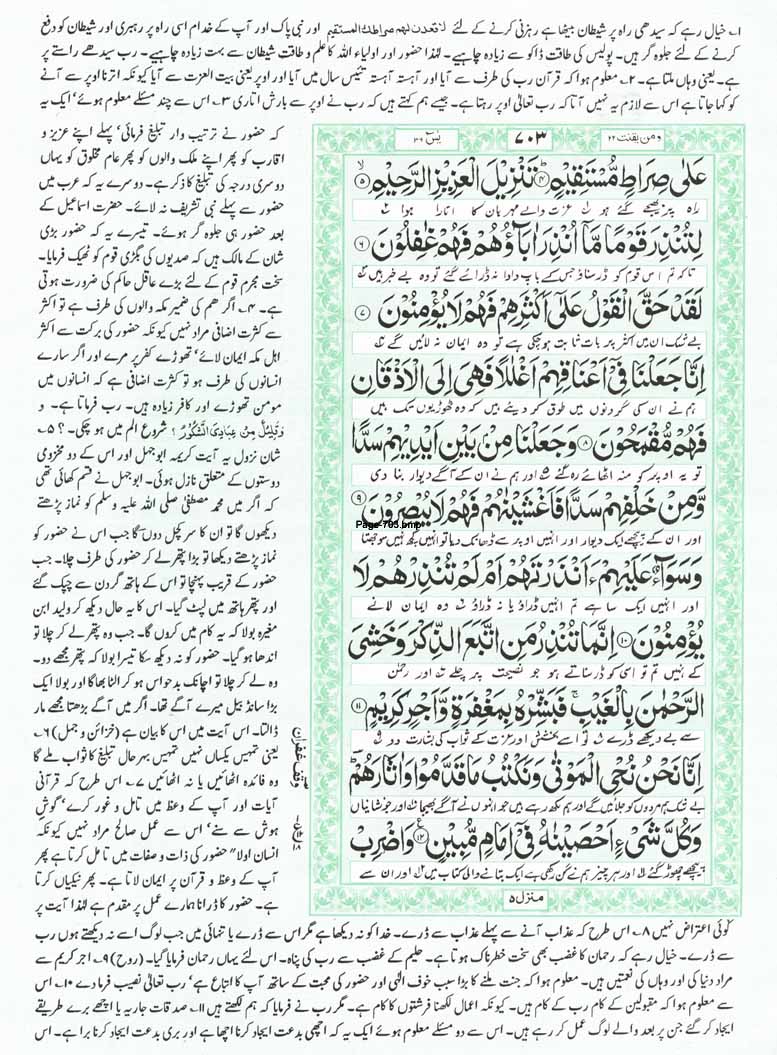 ۱؎ خیال رہے کہ سیدھی راہ پر شیطان بیٹھا ہے رہزنی کرنے کے لئے لَاَقْعُدَنَّ لَہُمْ صِرَاطَکَ الْمُسْتَقِیْمَ اور نبی پاک اور آپ کے خدام اسی راہ پر رہبری اور شیطان کو دفع
کرنے کے لئے جلوہ گر ہیں۔ پولیس کی طاقت ڈاکو سے زیادہ چاہیے۔ لہٰذا حضور اور اولیاء اللہ کا علم و طاقت شیطان سے بہت زیادہ چاہیے۔ رب سیدھے راستے پر
ہے۔ یعنی وہاں ملتا ہے۔ ۲؎ معلوم ہوا کہ قرآن رب کی طرف سے آیا اور آہستہ آہستہ تئیس سال میں آیا اور اوپر یعنی بیت العزت سے آیا کیونکہ اترنا اوپر سے آنے
کو کہا جاتا ہے اس سے لازم یہ نہیں آتا کہ رب تعالیٰ اوپر رہتا ہے۔ جیسے ہم کہتے ہیں کہ رب نے اوپر سے بارش اتاری ۳؎ اس سے چند مسئلے معلوم ہوئے' ایک یہ
کہ حضور نے ترتیب وار تبلیغ فرمائی' پہلے اپنے عزیز و
اقارب کو پھر اپنے ملک والوں کو پھر عام مخلوق کو یہاں
دوسری درجہ کی تبلیغ کا ذکر ہے۔ دوسرے یہ کہ عرب میں
حضور سے پہلے نبی تشریف نہ لائے۔ حضرت اسماعیل کے
بعد حضور ہی جلوہ گر ہوئے۔ تیسرے یہ کہ حضور بڑی
شان کے مالک ہیں کہ صدیوں کی بگڑی قوم کو ٹھیک فرمایا۔
سخت مجرم قوم کے لئے بڑے عاقل حاکم کی ضرورت ہوتی
ہے۔ ۴؎ اگر ھم کی ضمیر مکہ والوں کی طرف ہے تو اکثر
سے کثرت اضافی مراد نہیں کیونکہ حضور کی برکت سے اکثر
اہل مکہ ایمان لائے' تھوڑے کفر پر مرے اور اگر سارے
انسانوں کی طرف ہو تو کثرت اضافی ہے کہ انسانوں میں
مومن تھوڑے اور کافر زیادہ ہیں۔ رب فرماتا ہے۔ و
وَقَلِیْلٌ مِّنْ عِبَادِیَ الشَّکُوْرُ ؟ شروع الم میں ہو چکی۔ ؟ ۵؎
شان نزول یہ آیت کریمہ ابوجہل اور اس کے دو مخزومی
دوستوں کے متعلق نازل ہوئی۔ ابوجہل نے قسم کھائی تھی
کہ اگر میں محمد مصطفیٰ صلی اللہ علیہ وسلم کو نماز پڑھتے
دیکھوں گا تو ان کا سر کچل دوں گا جب اس نے حضور کو
نماز پڑھتے دیکھا تو بڑا پتھر لے کر حضور کی طرف چلا۔ جب
حضور کے قریب پہنچا تو اس کے ہاتھ گردن سے چپک گئے
اور پتھر ہاتھ میں لپٹ گیا۔ اس کا یہ حال دیکھ کر ولید ابن
مغیرہ بولا کہ یہ کام میں کروں گا۔ جب وہ پتھر لے کر چلا تو
اندھا ہو گیا۔ حضور کو نہ دیکھ سکا تیسرا بولا کہ پتھر مجھے دو۔
وہ لے کر چلا تو اچانک بدحواس ہو کر الٹا بھاگا اور بولا ایک
بڑا سانڈ بیل میرے آگے تھا۔ اگر میں آگے بڑھتا مجھے مار
ڈالتا۔ اس آیت میں اس کا بیان ہے (خزائن و جمل) ۶؎
یعنی تمہیں یکساں نہیں تمہیں بہرحال تبلیغ کا ثواب ملے گا
وہ فائدہ اٹھائیں یا نہ اٹھائیں ۷؎ اس طرح کہ قرآنی
آیات اور آپ کے وعظ میں تامل و غور کرے' گوش
ہوش سے سنے' اس سے عمل صالح مراد نہیں کیونکہ
انسان اولا" حضور کی ذات و صفات میں تامل کرتا ہے پھر
آپ کے وعظ و قرآن پر ایمان لاتا ہے۔ پھر نیکیاں کرتا
ہے۔ حضور کا ڈرانا ہمارے عمل پر مقدم ہے لہٰذا آیت پر
ومن یقنت ۲۲
۷۰۳
یٰسٓ ۳۶
عَلٰی صِرَاطٍ مُّسْتَقِیْمٍ ۴ تَنْزِیْلَ الْعَزِیْزِ الرَّحِیْمِ ۵
راہ پر بھیجے گئے ہو عزت والے مہربان کا اتارا ہوا
لِتُنْذِرَ قَوْمًا مَّاۤ اُنْذِرَ اٰبَآؤُهُمْ فَهُمْ غٰفِلُوْنَ ۶
تاکہ تم اس قوم کو ڈر سناؤ جس کے باپ دادا نہ ڈرائے گئے تو وہ بے خبر ہیں
لَقَدْ حَقَّ الْقَوْلُ عَلٰۤی اَكْثَرِهِمْ فَهُمْ لَا یُؤْمِنُوْنَ ۷
بے شک ان میں اکثر پر بات ثابت ہو چکی ہے تو وہ ایمان نہ لائیں گے
اِنَّا جَعَلْنَا فِیْۤ اَعْنَاقِهِمْ اَغْلٰلًا فَهِیَ اِلَی الْاَذْقَانِ
ہم نے ان کی گردنوں میں طوق کر دیئے ہیں کہ وہ ٹھوڑیوں تک ہیں
فَهُمْ مُّقْمَحُوْنَ ۸ وَجَعَلْنَا مِنْۢ بَیْنِ اَیْدِیْهِمْ سَدًّا
تو یہ اوپر کو منہ اٹھائے رہ گئے اور ہم نے ان کے آگے دیوار بنا دی
وَّمِنْ خَلْفِهِمْ سَدًّا فَاَغْشَیْنٰهُمْ فَهُمْ لَا یُبْصِرُوْنَ ۹
Page-703.bmp
اور ان کے پیچھے ایک دیوار اور انہیں اوپر سے ڈھانک دیا تو انہیں کچھ نہیں سوجھتا
وَسَوَآءٌ عَلَیْهِمْ ءَاَنْذَرْتَهُمْ اَمْ لَمْ تُنْذِرْهُمْ لَا
اور انہیں ایک سا ہے تم انہیں ڈراؤ یا نہ ڈراؤ وہ ایمان لانے
یُؤْمِنُوْنَ ۱۰ اِنَّمَا تُنْذِرُ مَنِ اتَّبَعَ الذِّكْرَ وَخَشِیَ
کے نہیں تم تو اسی کو ڈر سناتے ہو جو نصیحت پر چلے اور رحمٰن
الرَّحْمٰنَ بِالْغَیْبِ ۚ فَبَشِّرْهُ بِمَغْفِرَةٍ وَّاَجْرٍ كَرِیْمٍ ۱۱
سے بے دیکھے ڈرے تو اسے بخشش اور عزت کے ثواب کی بشارت دو
اِنَّا نَحْنُ نُحْیِ الْمَوْتٰی وَنَكْتُبُ مَا قَدَّمُوْا وَاٰثَارَهُمْ ؕ
بے شک ہم مردوں کو جلائیں گے اور ہم لکھ رہے ہیں جو انہوں نے آگے بھیجا اور جو نشانیاں
وَكُلَّ شَیْءٍ اَحْصَیْنٰهُ فِیْۤ اِمَامٍ مُّبِیْنٍ ۱۲ وَاضْرِبْ
پیچھے چھوڑ گئے اور ہر چیز ہم نے گن رکھی ہے ایک بتانے والی کتاب میں اور ان سے
منزل ۵
وقف غفران
کوئی اعتراض نہیں ۸؎ اس طرح کہ عذاب آنے سے پہلے عذاب سے ڈرے۔ خدا کو نہ دیکھا ہے مگر اس سے ڈرے یا تنہائی میں جب لوگ اسے نہ دیکھتے ہوں رب
سے ڈرے۔ خیال رہے کہ رحمان کا غضب بھی سخت خطرناک ہوتا ہے۔ حلیم کے غضب سے رب کی پناہ۔ اس لئے یہاں رحمان فرمایا گیا۔ (روح) ۹؎ اجر کریم سے
مراد دنیا کی اور وہاں کی نعمتیں ہیں۔ معلوم ہوا کہ جنت ملنے کا بڑا سبب خوف الٰہی اور حضور کی محبت کے ساتھ آپ کا اتباع ہے' رب تعالیٰ نصیب فرمادے ۱۰؎ اس
سے معلوم ہوا کہ مقبولین کے کام رب کے کام ہیں۔ کیونکہ اعمال لکھنا فرشتوں کا کام ہے۔ مگر رب نے فرمایا کہ ہم لکھتے ہیں ۱۱؎ صدقات جاریہ یا اچھے برے طریقے
ایجاد کر گئے جن پر بعد والے لوگ عمل کر رہے ہیں۔ اس سے دو مسئلے معلوم ہوئے ایک یہ کہ اچھی بدعت ایجاد کرنا اچھا ہے اور بری بدعت ایجاد کرنا برا ہے۔ اس